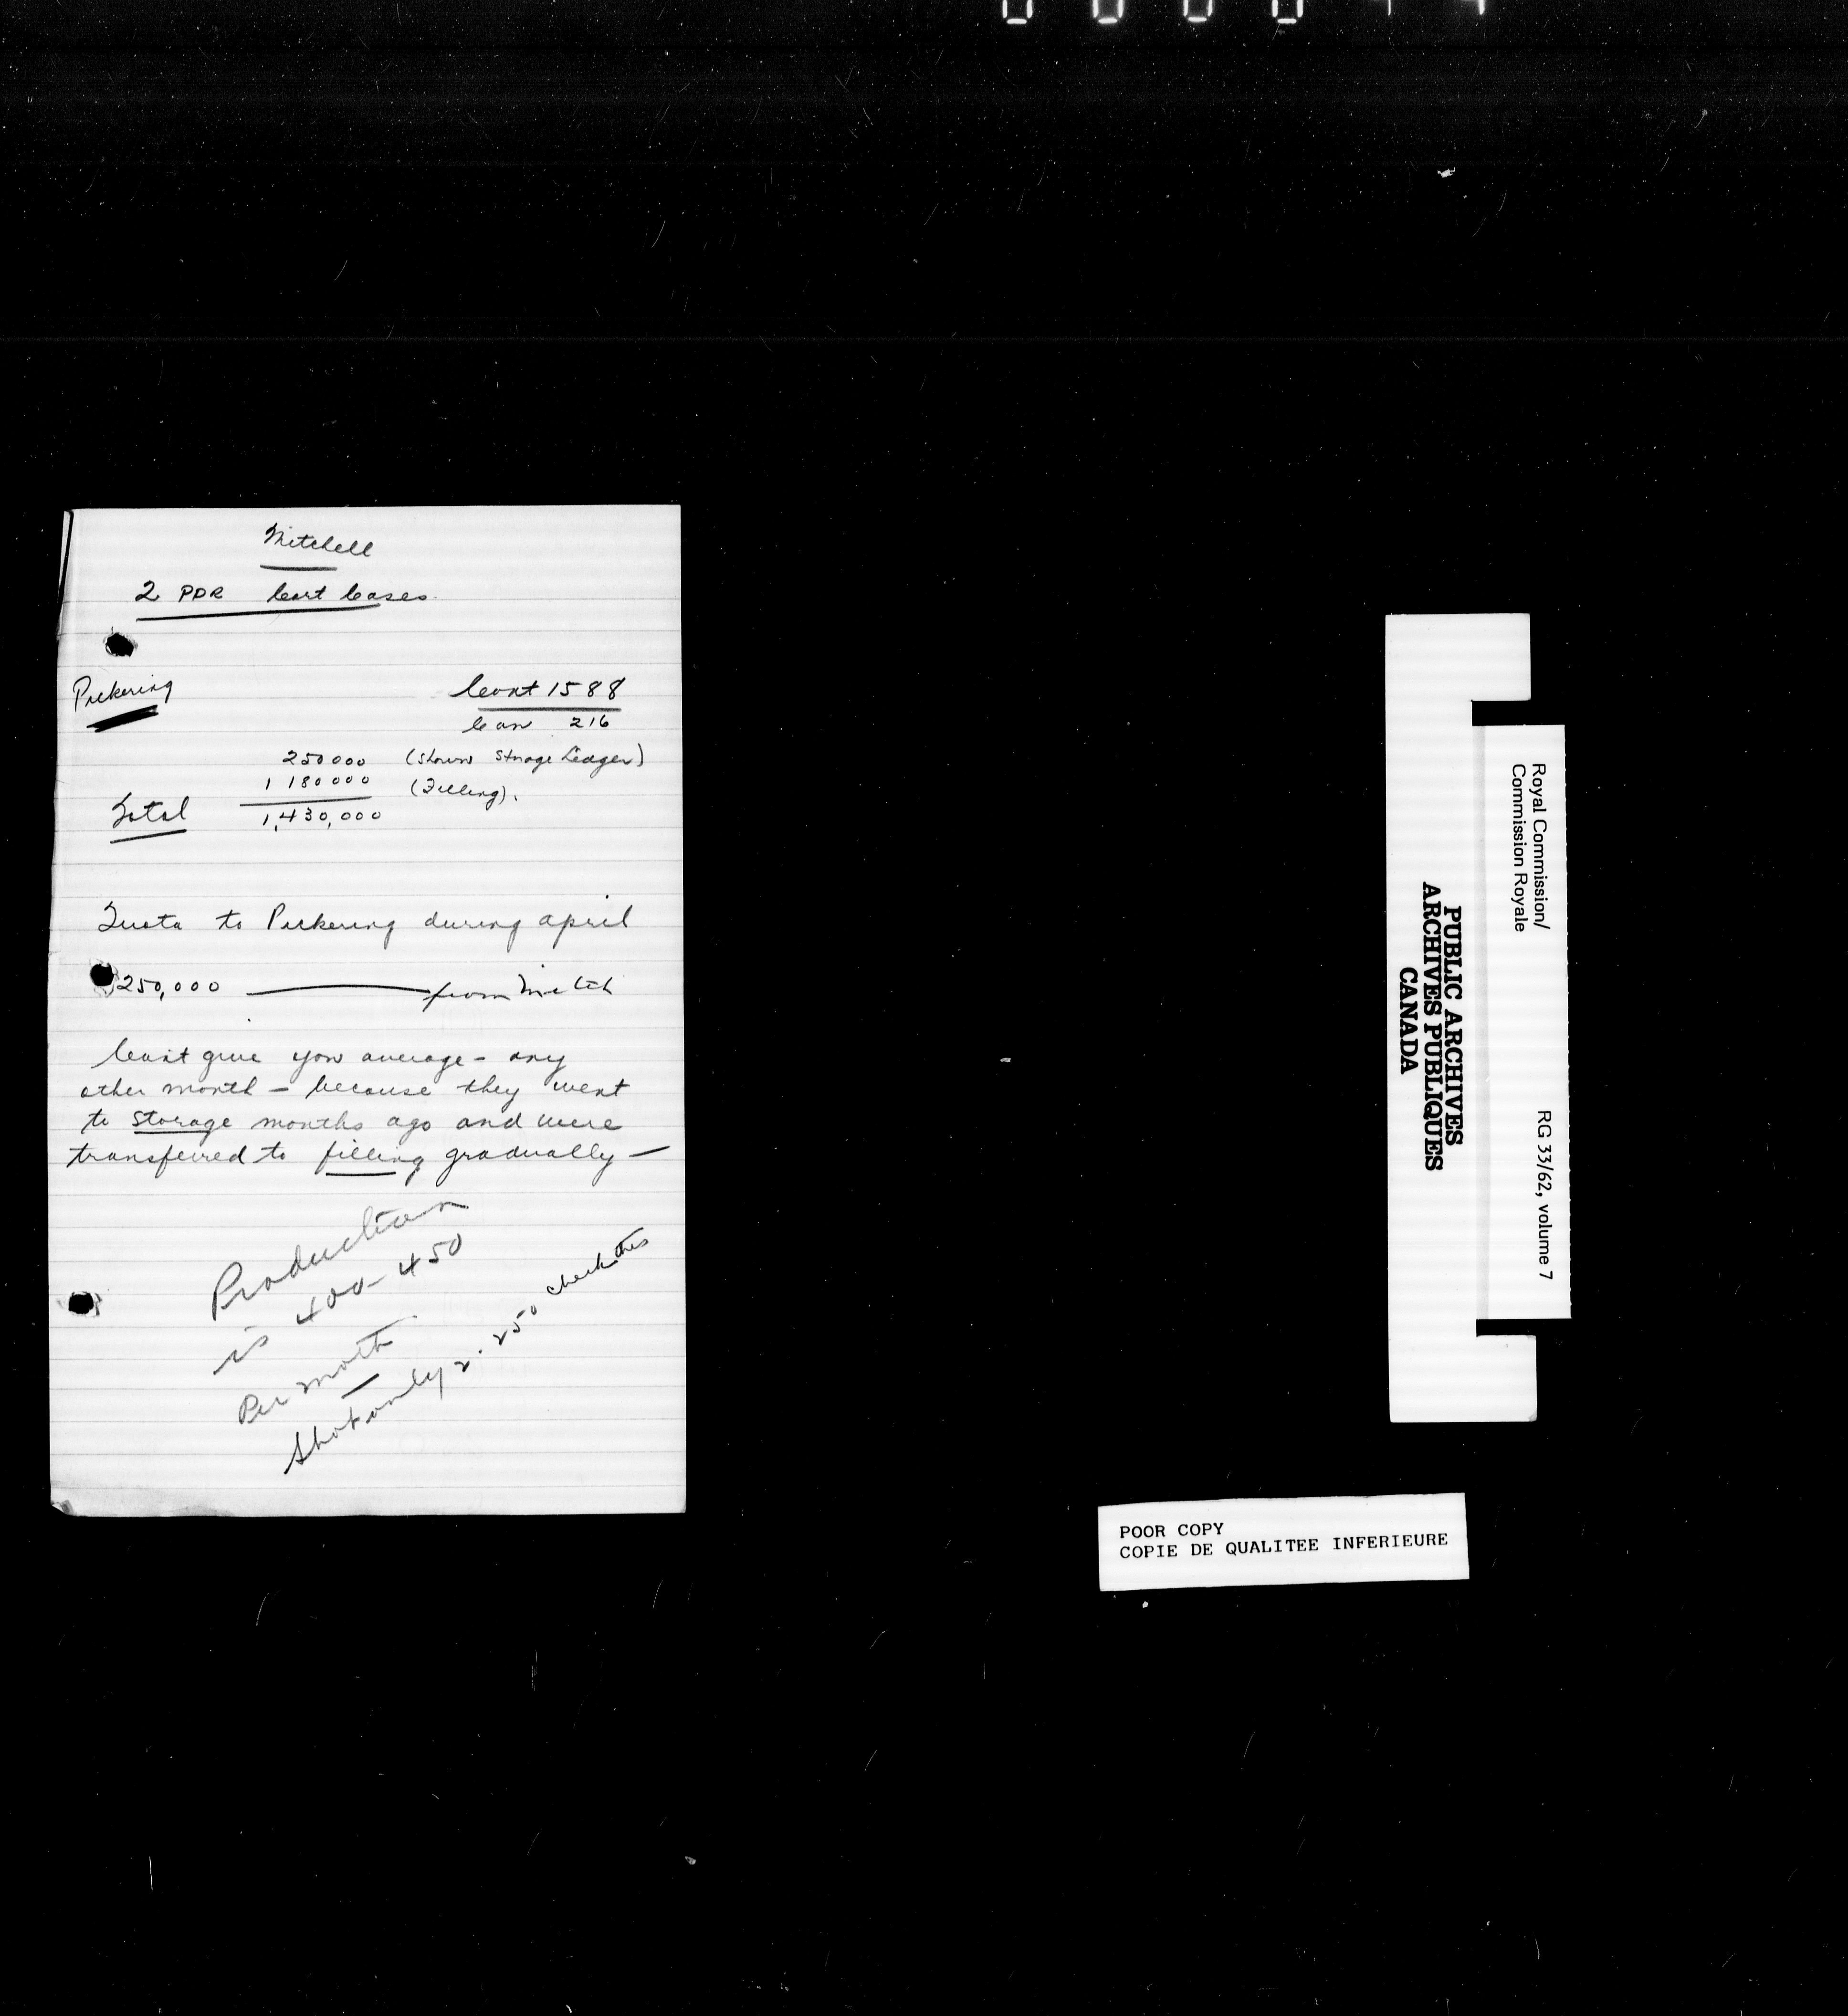 Mitchell
2 PDR Cart Cases
Pickering
Cont 1588
Can 216
250000 (Shown Storage Ledger)
1 180000 (Filling).
Total 1,430,000
to Pickering during april
250,000 — from Mitch
Can't give you average - any
other month - because they went
to storage months ago and were
transferred to filling gradually —
Production
is 400-450
Per month
Shot only 2.250 check this
Royal Commission/
Commission Royale
RG 33/62, volume 7
PUBLIC ARCHIVES
ARCHIVES PUBLIQUES
CANADA
POOR COPY
COPIE DE QUALITEE INFERIEURE